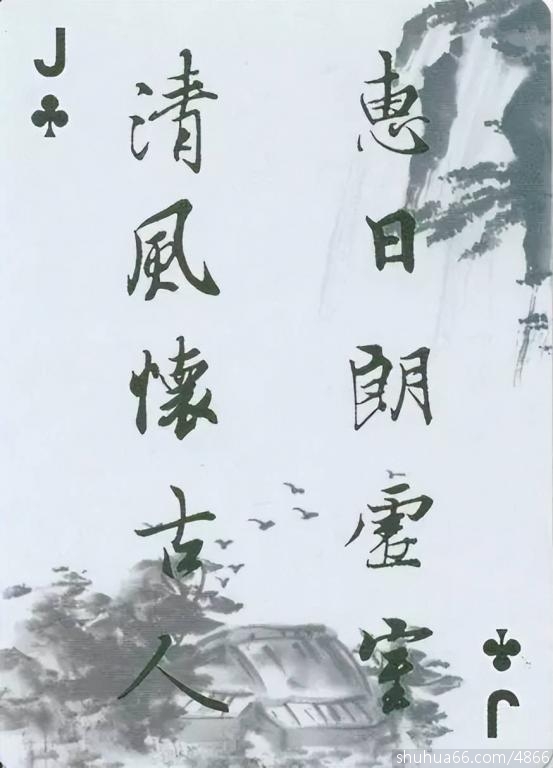 J
惠日朗虛室
清風懷古人
J
shuhua66.com/4866